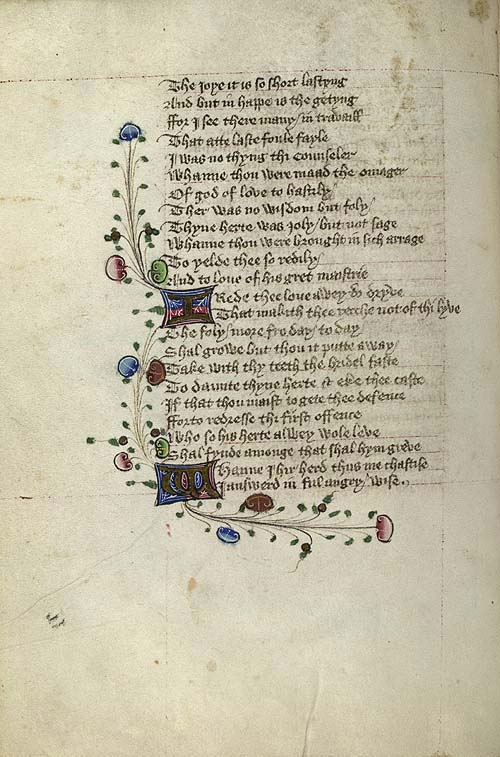 The Joye it is so short lastyng
And but in happe is the getyng
Ffor I see there many / in travaill
That atte laste foule fayle
I was no thyng thi counseler
Whanne thou were maad the omager
Of god of love to hastily /
Ther was no wisdom but foly /
Thyne herte was Joly / but not sage
Whanne thou were brought in sich arrage
To yelde thee so redily /
And to love of his gret maistrie
I Rede thee love awey to dryve
That makith thee recche not of thi lyve
The foly / more fro day / to day /
Shal growe but thou it putte away /
Take with thy teeth the bridel faste
To daunte thyne herte & eke thee caste
If that thou maist to gete thee defence
Fforto redresse thi first offence
Who so his herte alwey wole leve
Shal fynde amonge that shal hym greve
Whanne I hir herd thus me chastise
I answerd in ful angry / wise .